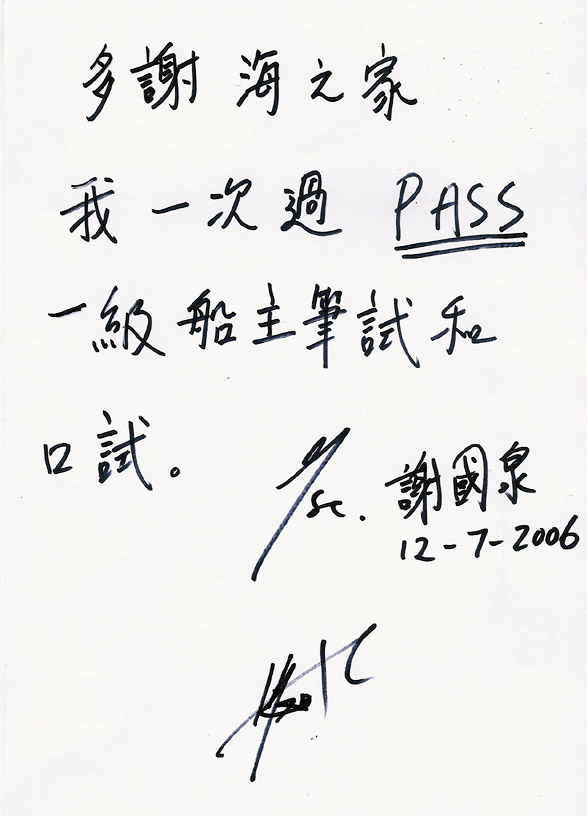 多謝 海之家
我一次過 PASS
一級船主筆試和
口試。
謝國泉
12-7-2006